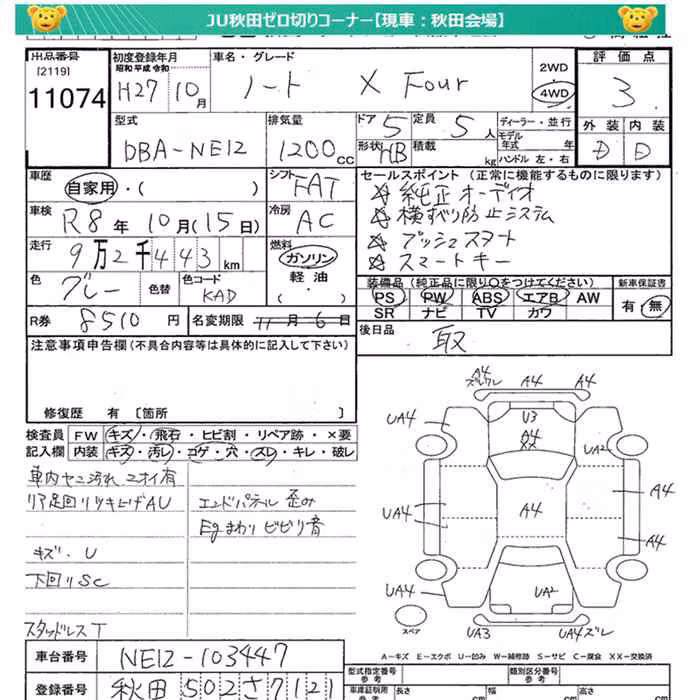 JU秋田ゼロ切りコーナー【現車：秋田会場】
出品番号 [2119] 11074
初度登録年月 昭和 平成 令和 H27年 10月
車名・グレード ノート X Four
2WD 4WD
評価点 3
外装 D 内装 D
型式 DBA-NE12
排気量 1200cc
ドア 5 定員 5人
形状 HB 積載 kg
ディーラー・並行
モデル年式 年
ハンドル 左・右
車歴 自家用・( )
シフト FAT
セールスポイント（正常に機能するものに限ります）
☆ 純正オーディオ
☆ 横すべり防止システム
☆ プッシュスタート
☆ スマートキー
車検 R8年 10月(15日)
冷房 AC
走行 9万2千443km
燃料 ガソリン 軽油 ( )
色 グレー 色替 色コード KAD
装備品（純正品に限り○をつけてください）
PS PW ABS エアB AW
SR ナビ TV カワ
新車保証書 有・無
R券 8510円 名変期限 11月6日
後日品 取
注意事項申告欄（不具合内容等は具体的に記入して下さい）
修復歴 有〔箇所 〕
検査員記入欄
FW キズ・飛石・ヒビ割・リペア跡・×要
内装 キズ・汚レ・コゲ・穴・スレ・キレ・破レ
車内ヤニ汚れ ニオイ有
リア足回りツキ上げAU
キズ・U
下回りSC
スタッドレスT
エンドパネル歪み
Egまわりビビリ音
A4 ズレワレ A4 A4
UA4 U3 A4 XX UA2
A4 UA4 A4 A4
UA4 UA2
スペア UA3 UA4ズレ
A－キズ E－エクボ U－凹み W－補修跡 S－サビ C－腐食 XX－交換済
車台番号 NE12-103447
登録番号 秋田 502 さ 7121
型式指定番号 参考 類別区分番号 参考
車庫証明用 参考 長さ cm 幅 cm 高さ cm